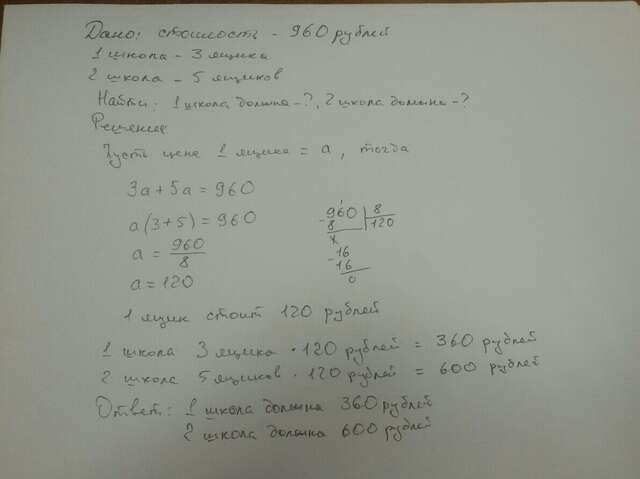 Дано: стоимость - 960 рублей
1 школа - 3 ящика
2 школа - 5 ящиков
Найти: 1 школа должна - ?, 2 школа должна - ?
Решение
Пусть цена 1 ящика = a, тогда
3a + 5a = 960
a(3+5) = 960
a = 960/8
a = 120
-960 | 8
8 120
-16
16
0
1 ящик стоит 120 рублей
1 школа 3 ящика · 120 рублей = 360 рублей
2 школа 5 ящиков · 120 рублей = 600 рублей
Ответ: 1 школа должна 360 рублей
2 школа должна 600 рублей